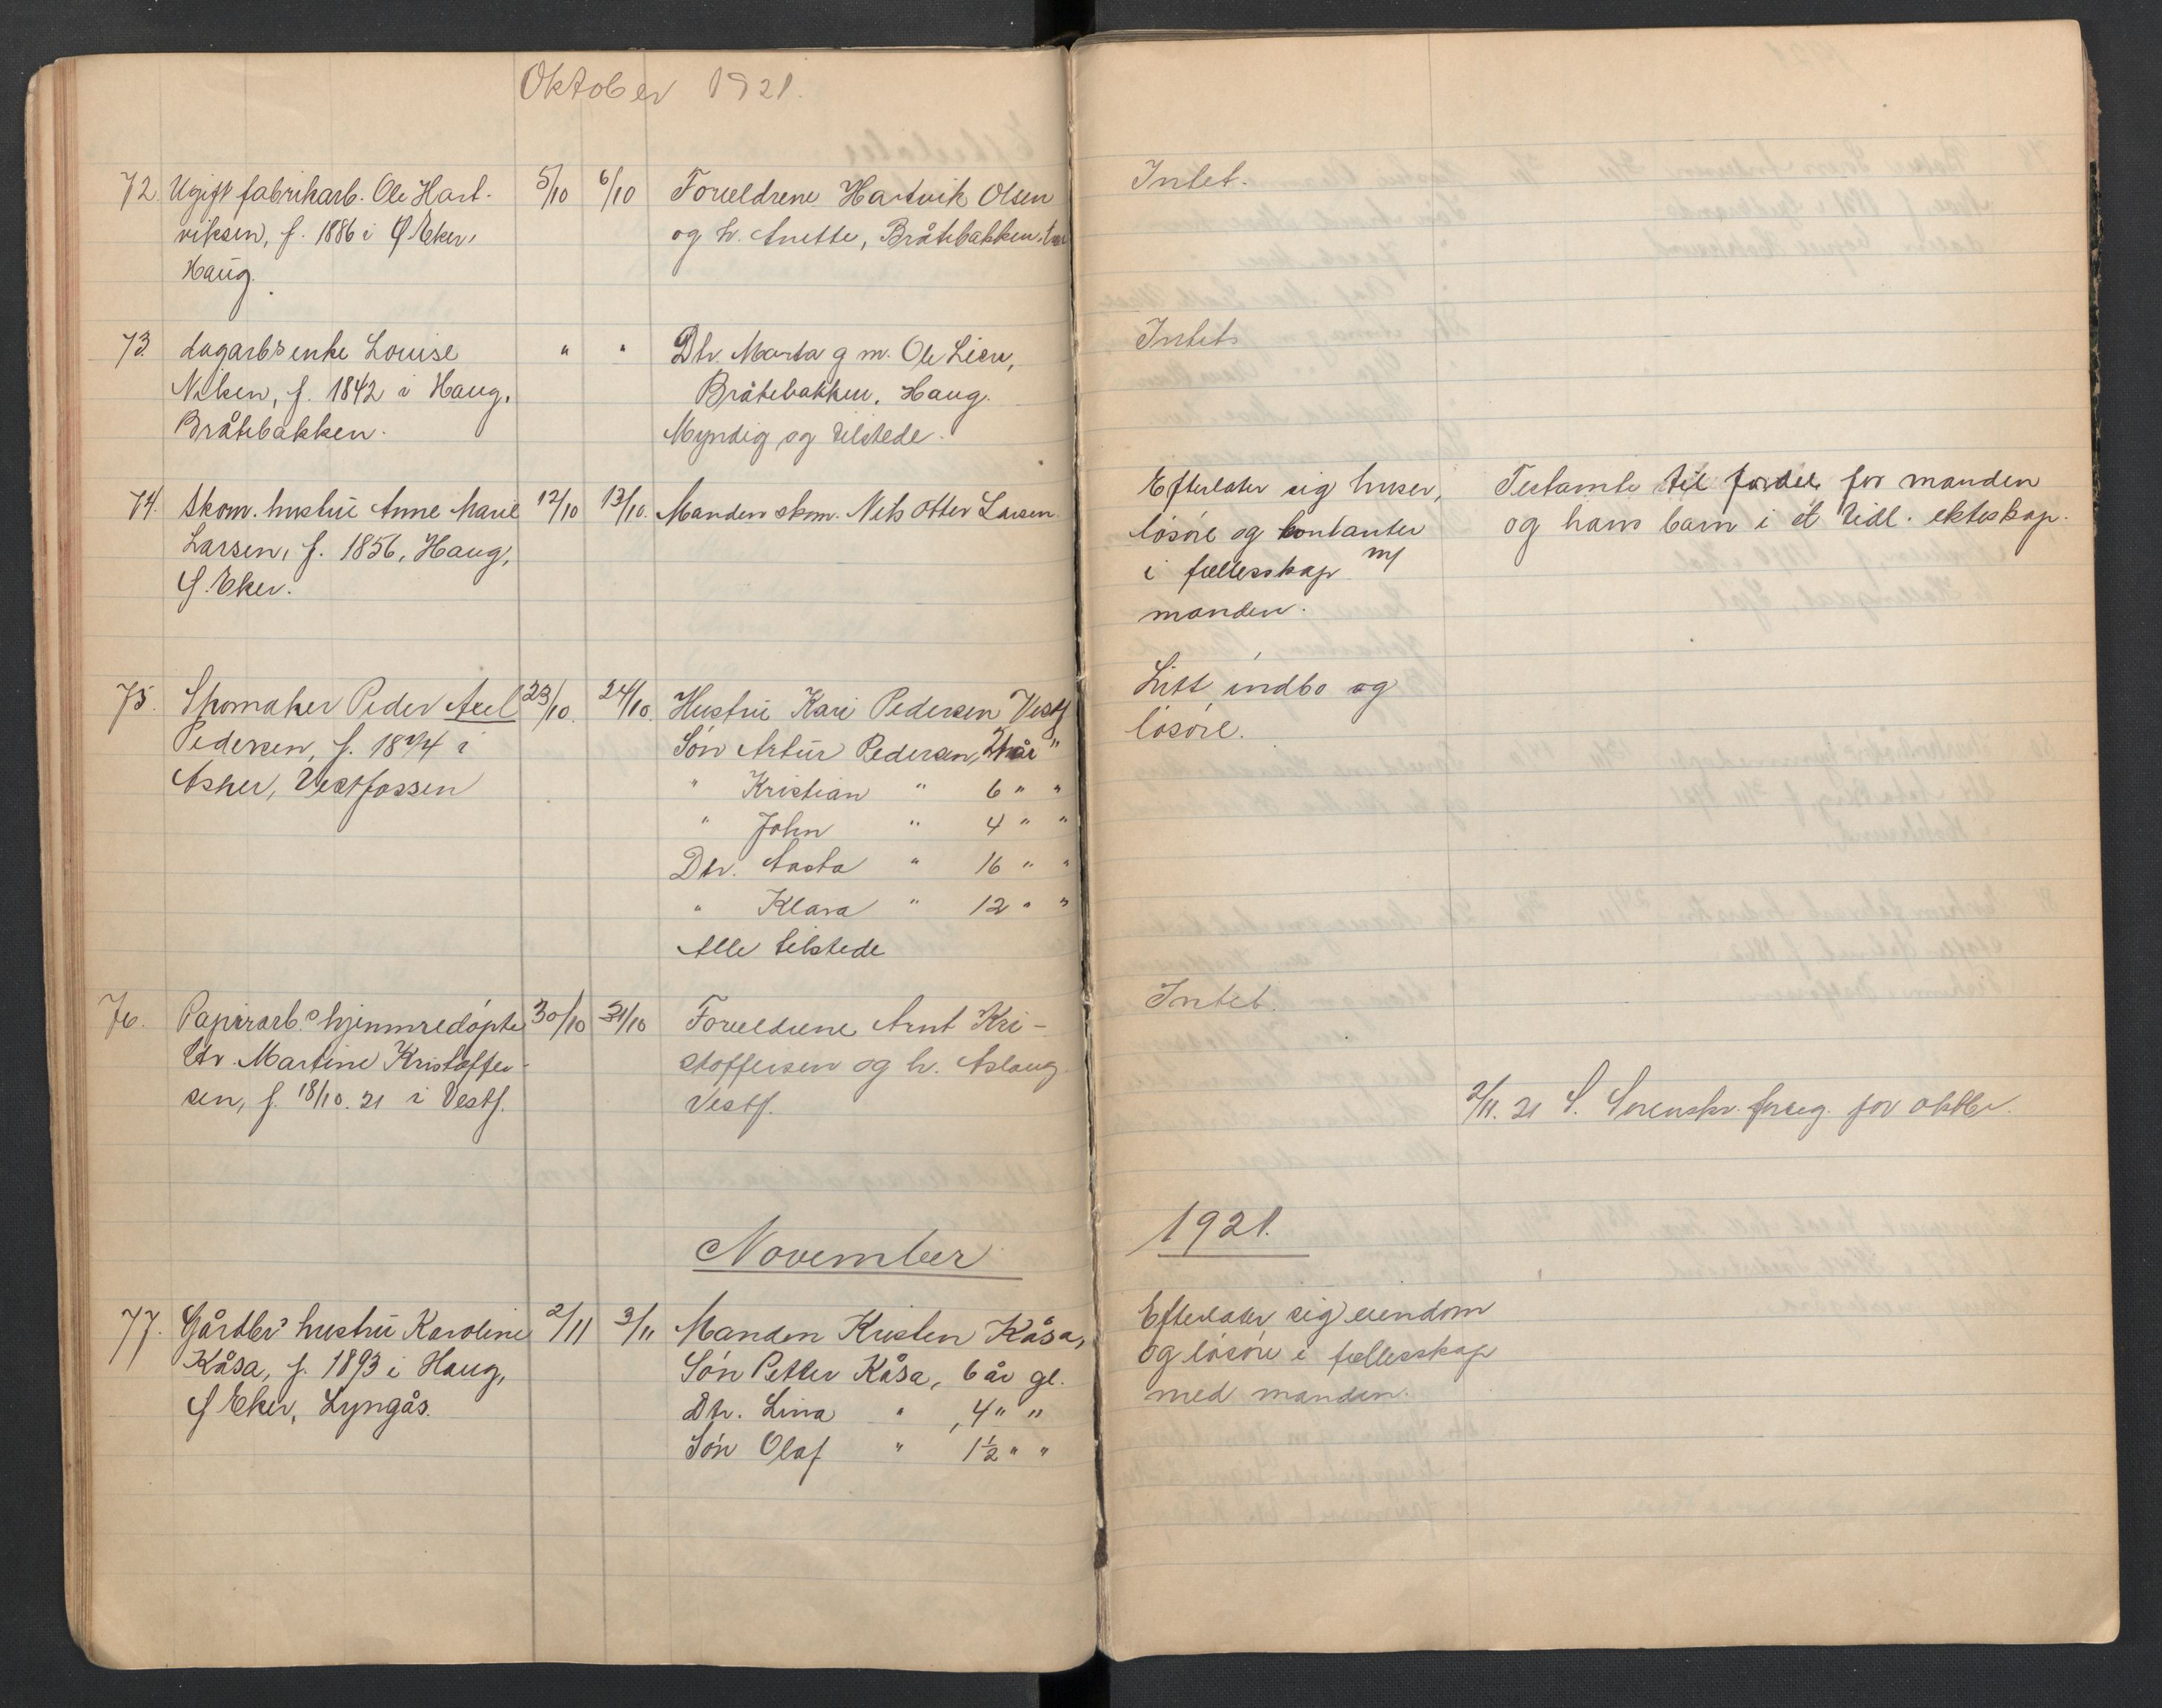 Oktober 1921.
72. Ugift fabrikarb. Ole Hart- 5/10 6/10 Forældrene Hartvik Olsen Intet.
viksen, f. 1886 i Ø Eker, og h. Anette, Bråtebakken,
Haug.
73. dagarbs enke Louise " " Dtr. Marta g m. Ole Lien, Intet
f. 1842 i Haug, Bråtebakken, Haug.
Bråtebakken. Myndig og tilstede.
74. Skom. hustru Anne Marie 12/10 13/10. Manden skom. Nels Otter Larsen. Efterlater sig huser, Testamte til fordel for manden
Larsen, f. 1856, Haug, løsøre og kontanter og hans barn i et tidl. ekteskap.
Ø. Eker. i fællesskap m/
manden.
75. Skomaker Peder Axel 23/10. 24/10. Hustru Kari Pedersen Vestf Litt indbo og
Pedersen, f. 1874 i Søn Artur Pedersen, år " løsøre.
Asker, Vestfossen " Kristian " 6 " "
" John " 4 " "
Dtr. Aasta " 16 " "
" Klara " 12 " "
Alle tilstede
76. Papirarbs hjemmedøpte 30/10 31/10 Forældrene Arnt Kri- Intet.
dtr. Martine Kristoffer- stoffersen og h. Aslaug
sen, f. 18/10. 21 i Vestf. Vestf.
2/11. 21 S. Sorenskr. forteg. for oktbr.
November 1921.
77. Gårdbrs hustru Karoline 2/11 3/11 Manden Kristen Kåsa, Efterlater sig eiendom
Kåsa, f. 1893 i Haug, Søn Petter Kåsa, 6 år gl. og løsøre i fællesskap
Ø Eker, Lyngås. Dtr. Lina " , 4 " " med manden.
Søn Olaf " 1½ " "